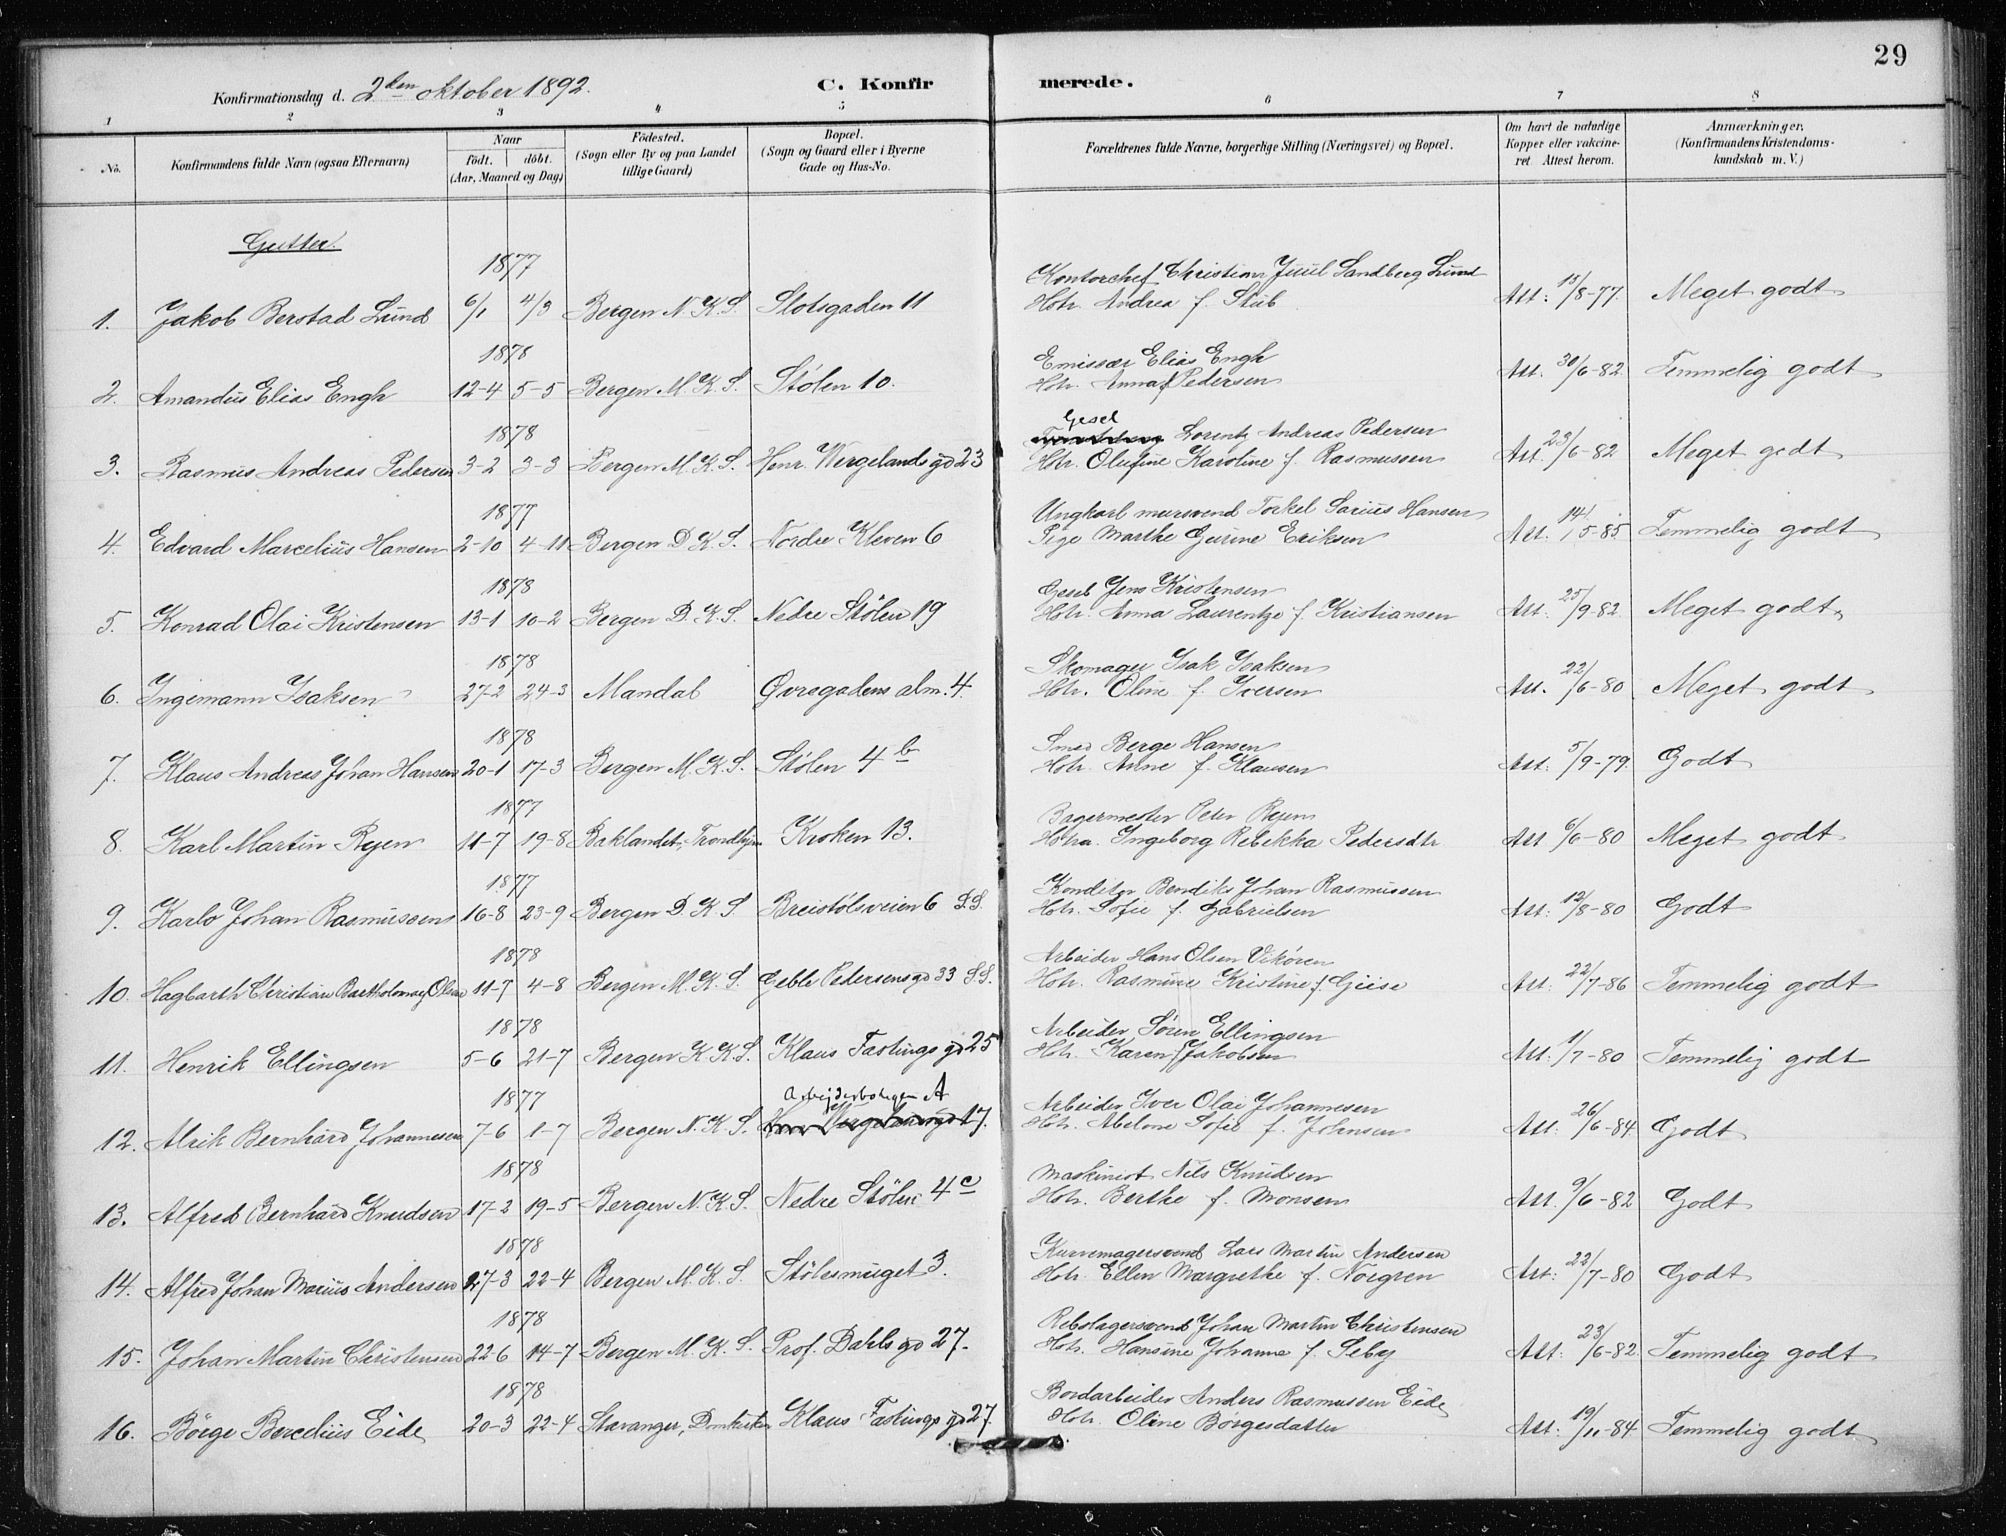 29
Konfirmationsdag d. 2den oktober 1892.
C. Konfir merede.
1 2 3 4 5 6 7 8
No. Konfirmandens fulde Navn (ogsaa Efternavn) Naar født. døbt. (Aar, Maaned og Dag) Fødested. (Sogn eller By og paa Landet tillige Gaard) Bopæl. (Sogn og Gaard eller i Byerne Gade og Hus-No. Forældrenes fulde Navne, borgerlige Stilling (Næringsvei) og Bopæl. Om havt de naturlige Kopper eller vakcineret Attest herom. Anmærkninger. (Konfirmandens Kristendomskundskab m. V.)
Gutter.
1877 Kontorchef Christian Juul Sandberg Lund
1. Jakob Berstad Lund 6/1 4/3 Bergen N. K. S. Slotsgaden 11 Hstr. Andrea f. Stub Att: 15/8-77. Meget godt
1878 Emissær Elias Engh
2. Amandus Elias Engh 12-4 5-5 Bergen M. K. S. Stølen 10. Hstr. Anna f. Pedersen Att. 30/6-82. Temmelig godt
Gesel
1878 Lorentz Andreas Pedersen
3. Rasmus Andreas Pedersen 3-2 3-3 Bergen M. K. S. Henr. Wergelands gd 23 Hstr. Olufine Karoline f. Rasmussen Att. 23/6-82 Meget godt
1877 Ungkarl mursvend Torkel Sarius Hansen
4. Edvard Marcelius Hansen 2-10 4-11 Bergen D. K. S. Nordre Kleven 6 Pige Marthe Gurine Eriksen Att. 14/5-85. Temmelig godt
1878 Gesel Jens Kristensen
5. Konrad Olai Kristensen 13-1 10-2 Bergen D. K. S. Nedre Stølen 19 Hstr. Anna Laurentze f. Kristiansen Att. 25/9-82 Meget godt
1878 Skomager Isak Isaksen
6. Ingemann Isaksen 27-2 24-3 Mandal Øvregadens alm. 4. Hstr. Oline f. Iversen Att. 22/6-80 Meget godt
1878 Smed Berge Hansen
7. Klaus Andreas Johan Hansen 20-1 17-3 Bergen M. K. S. Stølen 4b Hstr. Anne f. Klausen Att: 5/9-79. Godt
1877 Bagermester Peter Ryen
8. Karl Martin Ryen 11-7 19-8 Baklandet, Trondhjem Kroken 13. Hstra. Ingeborg Rebekka Pedersdtr Att 6/6-80 Meget godt
1877 Konditor Bendiks Johan Rasmussen
9. Karlo Johan Rasmussen 16-8 23-9 Bergen D. K. S Breistølsveien 6 S.S. Hstr. Sofie f. Gabrielsen Att: 12/8-80 Godt
1878 Arbeider Hans Olsen Vikøren
10. Hagbarth Christian Bartholomæ Olsen 11-7 4-8 Bergen M. K. S. Geble Pedersens gd 33 S.S. Hstr. Rasmine Kristine f. Giise Att: 22/7-86 Temmelig godt
1878 Arbeider Søren Ellingsen
11. Henrik Ellingsen 5-6 21-7 Bergen K. K. S. Klaus Fastings gd 25 Hstr. Karen f. Jakobsen Att: 1/7-80 Temmelig godt
Arbejderboligen A
1877 Arbeider Iver Olai Johannesen
12. Alrik Bernhard Johannesen 7-6 1-7 Bergen N. K. S. Henr. Wergelands gd 17. Hstr. Abelone Sofie f. Johnsen Att: 26/6-84. Godt
1878 Maskinist Nils Knudsen
13. Alfred Bernhard Knudsen 17-2 19-5 Bergen N. K. S. Nedre Stølen 4c Hstr. Berthe f. Monsen Att. 9/6-82 Godt
1878 Kurvemagersvend Lars Martin Andersen
14. Alfred Johan Marius Andersen 27-3 22-4 Bergen M. K. S. Stølesmuget 3. Hstr. Ellen Margrethe f. Norgren Att: 22/7-80 Godt
1878 Rebslagersvend Johan Martin Christensen
15. Johan Martin Christensen 22-6 14-7 Bergen M. K. S. Prof. Dahls gd 27. Hstr. Hansine Johanne f. Seby Att: 23/6-82. Temmelig godt
1878 Bordarbeider Anders Rasmussen Eide
16. Børge Berelius Eide 20-3 22-4 Stavanger, Domkirken Klaus Fastings gd 27. Hstr. Oline Børgesdatter Att: 19/11-84 Temmelig godt